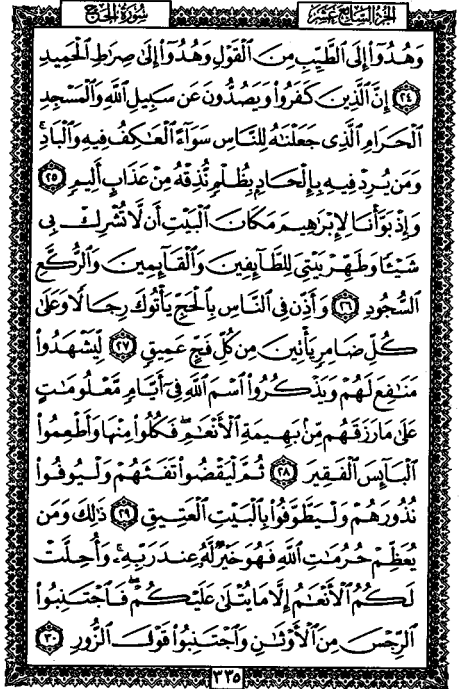 الجزء السابع عشر سورة الحج
وَهُدُوٓا۟ إِلَى ٱلطَّيِّبِ مِنَ ٱلْقَوْلِ وَهُدُوٓا۟ إِلَىٰ صِرَٰطِ ٱلْحَمِيدِ
٢٤ إِنَّ ٱلَّذِينَ كَفَرُوا۟ وَيَصُدُّونَ عَن سَبِيلِ ٱللَّهِ وَٱلْمَسْجِدِ
ٱلْحَرَامِ ٱلَّذِى جَعَلْنَٰهُ لِلنَّاسِ سَوَآءً ٱلْعَٰكِفُ فِيهِ وَٱلْبَادِ ۚ
وَمَن يُرِدْ فِيهِ بِإِلْحَادٍۭ بِظُلْمٍ نُّذِقْهُ مِنْ عَذَابٍ أَلِيمٍ ٢٥
وَإِذْ بَوَّأْنَا لِإِبْرَٰهِيمَ مَكَانَ ٱلْبَيْتِ أَن لَّا تُشْرِكْ بِى
شَيْـًٔا وَطَهِّرْ بَيْتِىَ لِلطَّآئِفِينَ وَٱلْقَآئِمِينَ وَٱلرُّكَّعِ
ٱلسُّجُودِ ٢٦ وَأَذِّن فِى ٱلنَّاسِ بِٱلْحَجِّ يَأْتُوكَ رِجَالًا وَعَلَىٰ
كُلِّ ضَامِرٍ يَأْتِينَ مِن كُلِّ فَجٍّ عَمِيقٍ ٢٧ لِّيَشْهَدُوا۟
مَنَٰفِعَ لَهُمْ وَيَذْكُرُوا۟ ٱسْمَ ٱللَّهِ فِىٓ أَيَّامٍ مَّعْلُومَٰتٍ
عَلَىٰ مَا رَزَقَهُم مِّنۢ بَهِيمَةِ ٱلْأَنْعَٰمِ ۖ فَكُلُوا۟ مِنْهَا وَأَطْعِمُوا۟
ٱلْبَآئِسَ ٱلْفَقِيرَ ٢٨ ثُمَّ لْيَقْضُوا۟ تَفَثَهُمْ وَلْيُوفُوا۟
نُذُورَهُمْ وَلْيَطَّوَّفُوا۟ بِٱلْبَيْتِ ٱلْعَتِيقِ ٢٩ ذَٰلِكَ وَمَن
يُعَظِّمْ حُرُمَٰتِ ٱللَّهِ فَهُوَ خَيْرٌ لَّهُۥ عِندَ رَبِّهِۦ ۗ وَأُحِلَّتْ
لَكُمُ ٱلْأَنْعَٰمُ إِلَّا مَا يُتْلَىٰ عَلَيْكُمْ ۖ فَٱجْتَنِبُوا۟
ٱلرِّجْسَ مِنَ ٱلْأَوْثَٰنِ وَٱجْتَنِبُوا۟ قَوْلَ ٱلزُّورِ ٣٠
٣٣٥